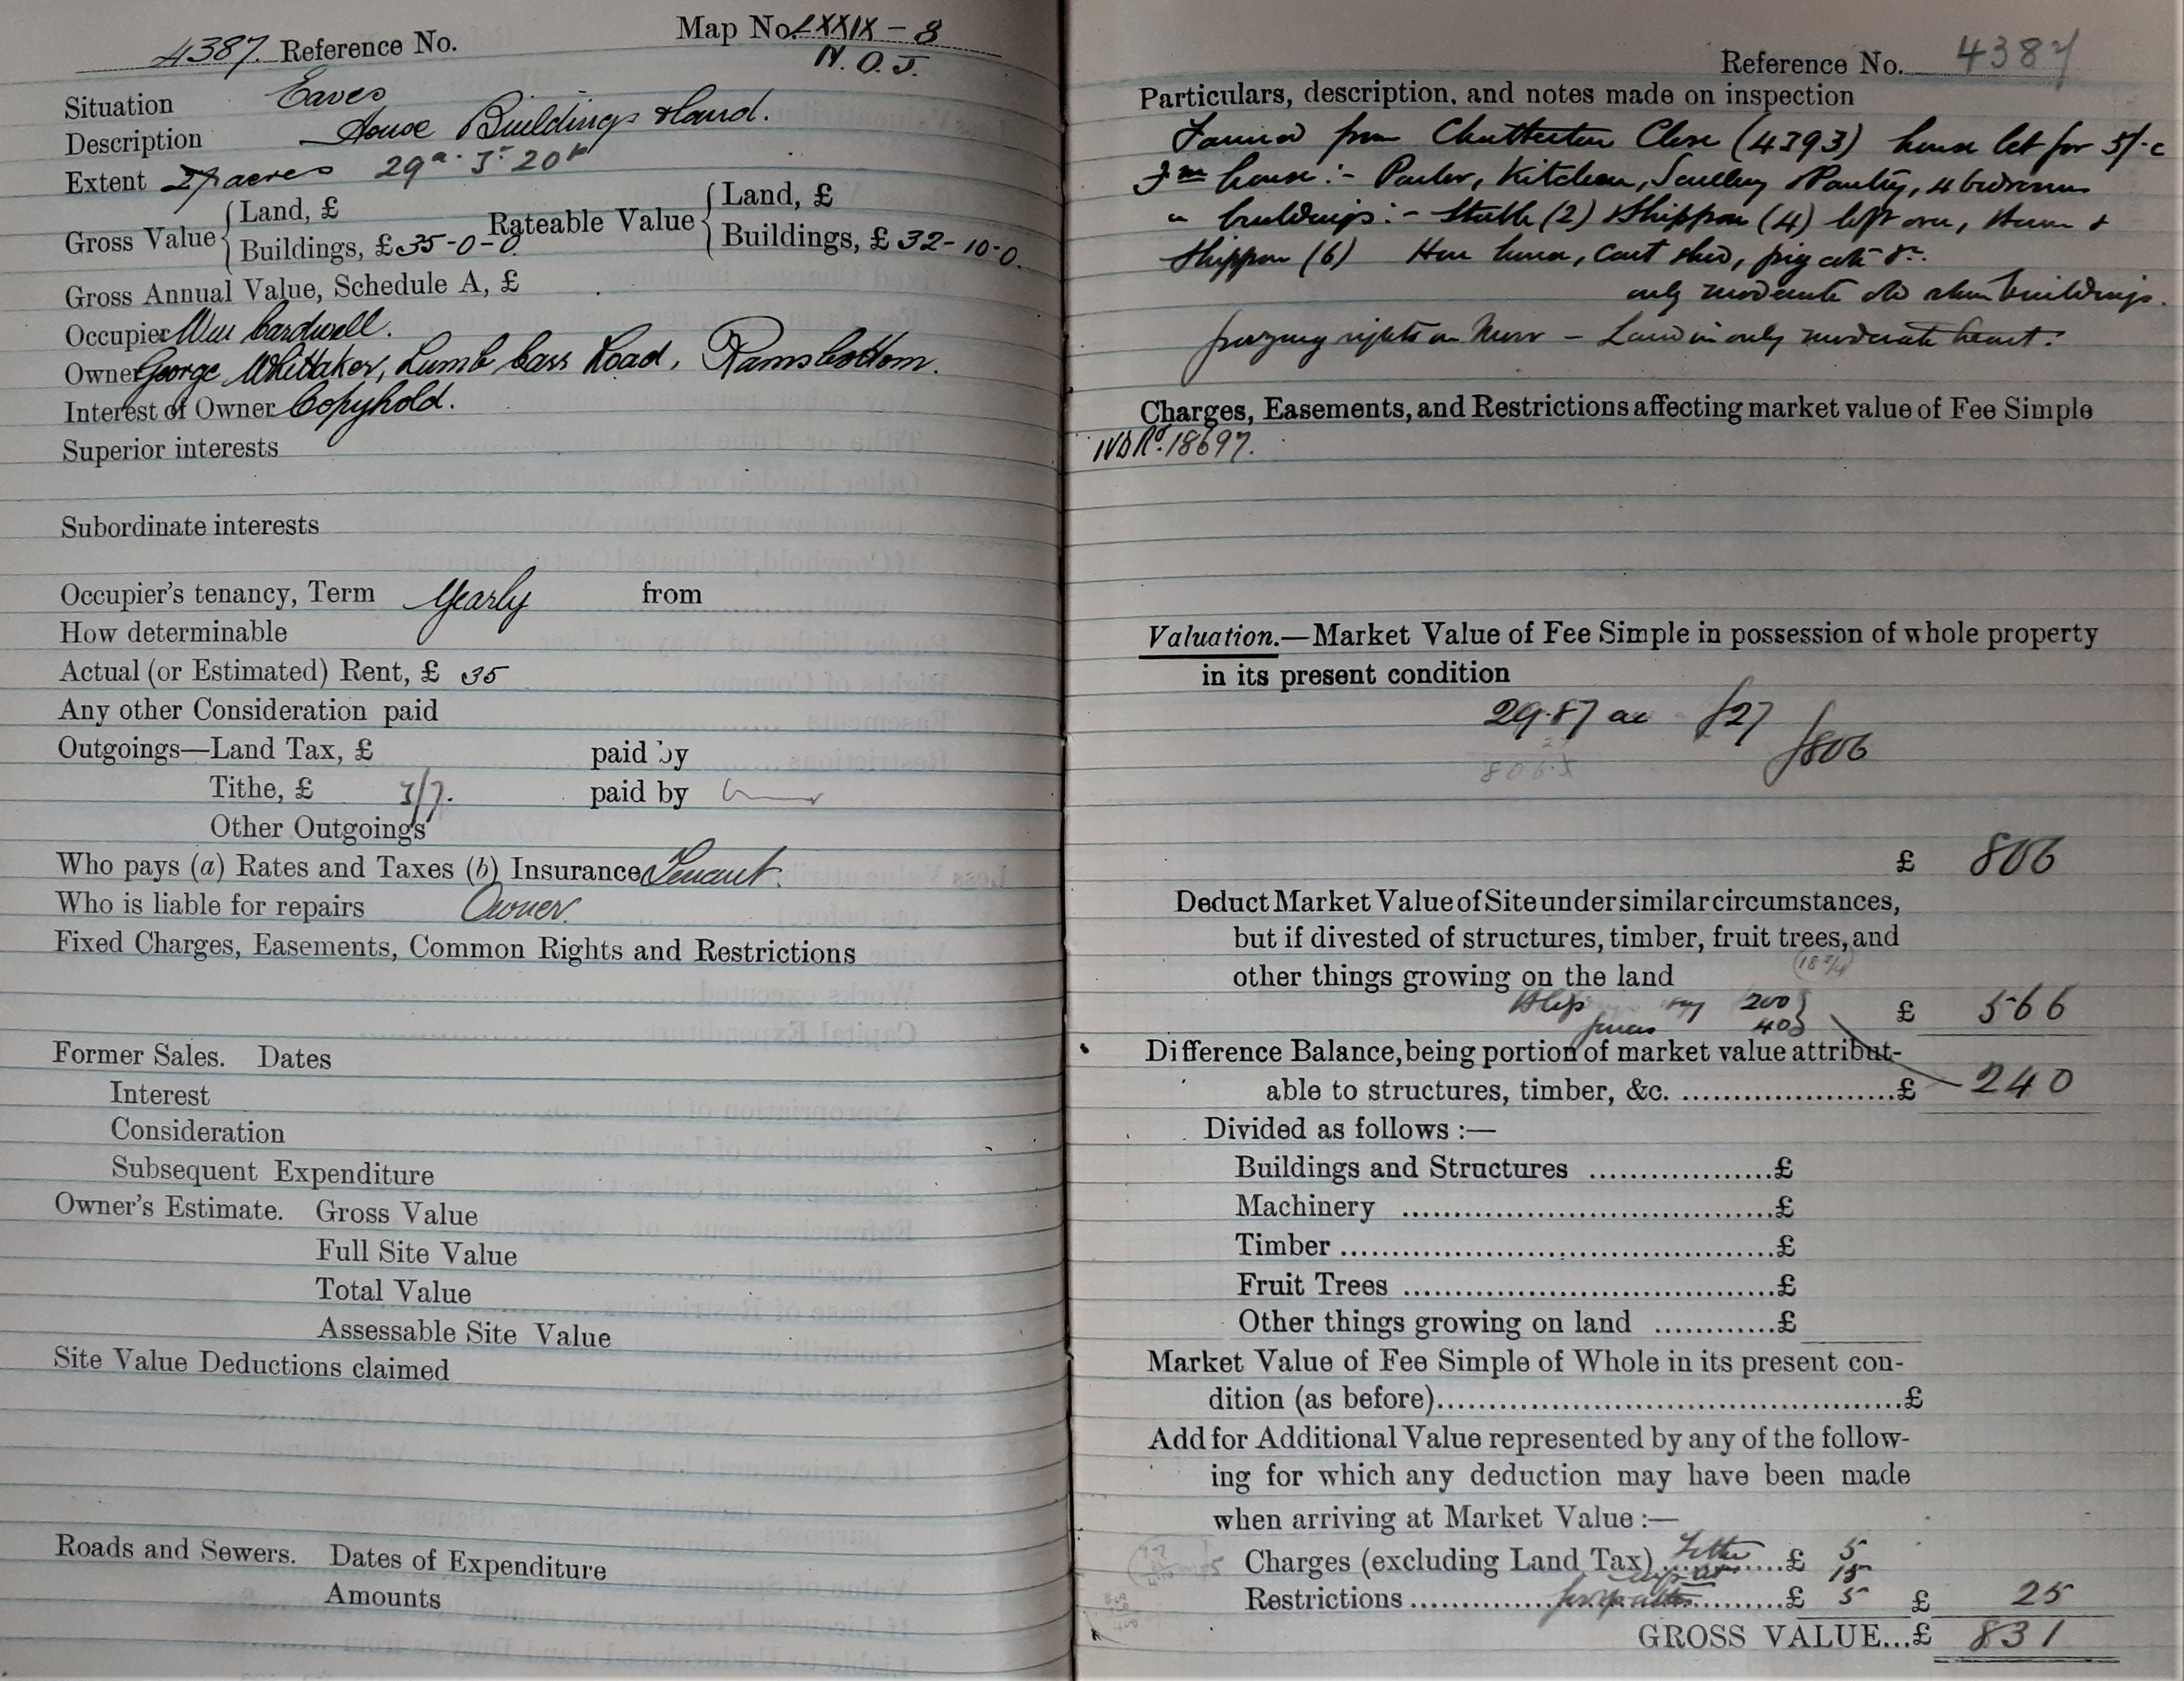 4387. Reference No. Map No. LXXIX - 8
N.O.J.
Situation Eaves
Description House Buildings & land.
Extent 27 acres 29a. 3r 20p
Gross Value { Land, £ Rateable Value { Land, £
Buildings, £ 35-0-0 Buildings, £ 32-10-0.
Gross Annual Value, Schedule A, £
Occupier Wm Cardwell.
Owner George Whittaker, Lumb Carr Road, Ramsbottom.
Interest of Owner Copyhold.
Superior interests
Subordinate interests
Occupier's tenancy, Term Yearly from
How determinable
Actual (or Estimated) Rent, £ 35
Any other Consideration paid
Outgoings—Land Tax, £ paid by
Tithe, £ 3/7. paid by
Other Outgoings
Who pays (a) Rates and Taxes (b) Insurance Tenant.
Who is liable for repairs Owner.
Fixed Charges, Easements, Common Rights and Restrictions
Former Sales. Dates
Interest
Consideration
Subsequent Expenditure
Owner's Estimate. Gross Value
Full Site Value
Total Value
Assessable Site Value
Site Value Deductions claimed
Roads and Sewers. Dates of Expenditure
Amounts
Reference No. 4387
Particulars, description, and notes made on inspection
Farmed from Chatterton Close (4393) house let for 3/-
Fm house:- Parlor, Kitchen, Scullery Pantry, 4 bedrooms
" buildings:- Stable (2) Shippon (4) loft over, &
Shippon (6) Hen house, cart shed, pig cote &c.
only moderate old buildings.
grazing rights on Moor - Land in only moderate heart.
Charges, Easements, and Restrictions affecting market value of Fee Simple
No. 18697.
Valuation.—Market Value of Fee Simple in possession of whole property
in its present condition
29.87 ac £27
£806
806.5
£ 806
Deduct Market Value of Site under similar circumstances,
but if divested of structures, timber, fruit trees, and
other things growing on the land (18 3/4)
say 200 } £ 566
40 }
Difference Balance, being portion of market value attribut-
able to structures, timber, &c. £ 240
Divided as follows :—
Buildings and Structures £
Machinery £
Timber £
Fruit Trees £
Other things growing on land £
Market Value of Fee Simple of Whole in its present con-
dition (as before) £
Add for Additional Value represented by any of the follow-
ing for which any deduction may have been made
when arriving at Market Value :—
Charges (excluding Land Tax) Tithe £ 5
15
Restrictions £ 5 £ 25
GROSS VALUE...£ 831